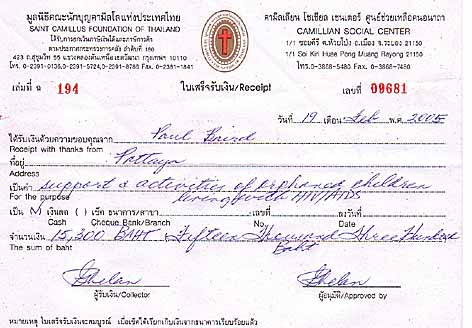 มูลนิธิคณะนักบุญคามิลโลแห่งประเทศไทย
SAINT CAMILLUS FOUNDATION OF THAILAND
ได้รับการยกเว้นภาษีเงินได้และภาษีการค้า
ตามประกาศกระทรวงการคลัง ลำดับที่ 160
คามิลเลียน โซเชียล เซนเตอร์ ศูนย์ช่วยเหลือคนอนาถา
CAMILLIAN SOCIAL CENTER
1/1 ซอยคีรี ต.ห้วยโป่ง อ.เมือง จ.ระยอง 21150
1/1 Soi Kiri Huai Pong Muang Rayong 21150
โทร. 0-3868-5480 Fax. 0-3868-7480
เล่มที่ ฉ 194
ใบเสร็จรับเงิน/Receipt
เลขที่ 09681
วันที่ 19 เดือน Feb พ.ศ. 2005
ได้รับเงินด้วยความขอบคุณจาก Paul
Receipt with thanks from
ที่อยู่ Pattaya
Address
เป็นค่า support & activities of orphaned children
For the purpose living with HIV/AIDS
เป็น เงินสด ( ) เช็ค ธนาคาร/สาขา เลขที่ ลงวันที่
Cash Cheque, Bank/Branch No. Date
จำนวนเงิน 15,300 BAHT - Fifteen Thousand Three Hundred
The sum of baht Baht
ผู้รับเงิน/Collector ผู้อนุมัติ/Approved by
หมายเหตุ ใบเสร็จรับเงินจะสมบูรณ์ เมื่อเช็คได้เรียกเก็บเงินจากธนาคารเรียบร้อยแล้ว